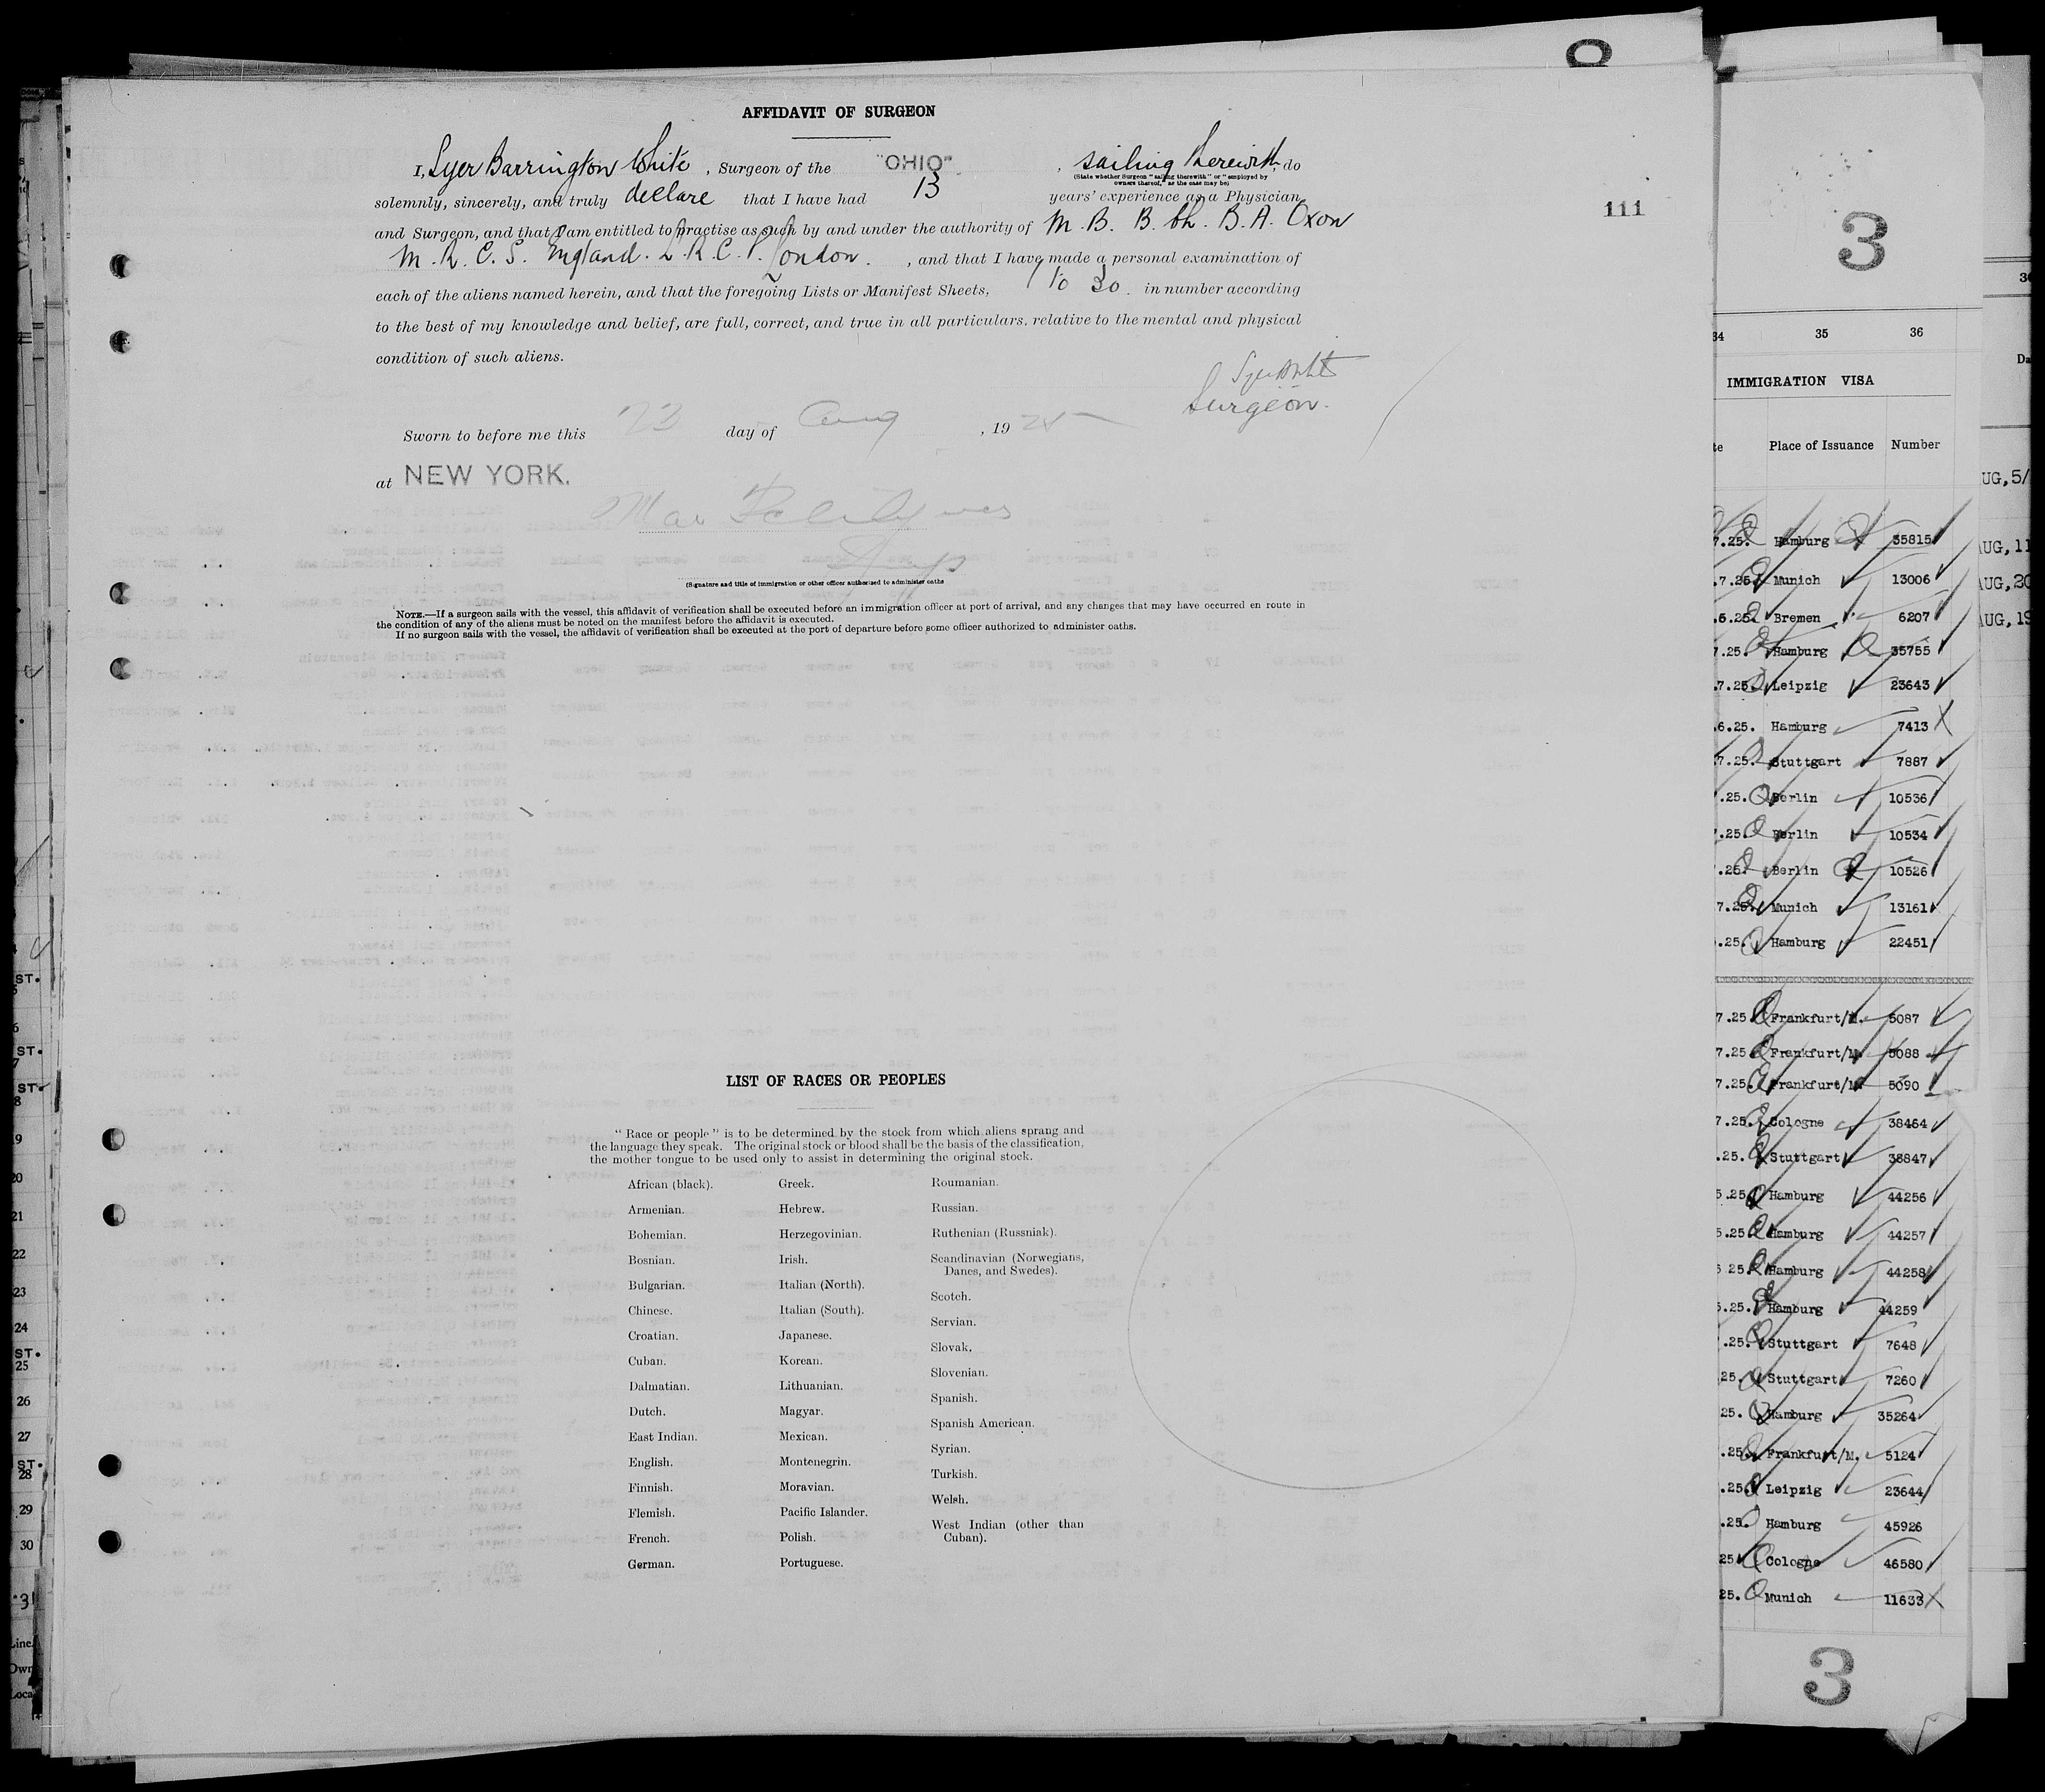 AFFIDAVIT OF SURGEON
I, Syer Barrington White, Surgeon of the "OHIO", sailing therewith, do
(State whether Surgeon "sailing therewith" or "employed by
owners thereof," as the case may be)
solemnly, sincerely, and truly declare that I have had 13 years' experience as a Physician
and Surgeon, and that I am entitled to practise as such by and under the authority of M.B. B.Ch. B.A. Oxon
M.R.C.S. England. L.R.C.P. London. , and that I have made a personal examination of
each of the aliens named herein, and that the foregoing Lists or Manifest Sheets, 1 to 30. in number according
to the best of my knowledge and belief, are full, correct, and true in all particulars, relative to the mental and physical
condition of such aliens.
Surgeon.
Sworn to before me this 23 day of Aug , 19 25
at NEW YORK.
(Signature and title of immigration or other officer authorized to administer oaths
NOTE.—If a surgeon sails with the vessel, this affidavit of verification shall be executed before an immigration officer at port of arrival, and any changes that may have occurred en route in
the condition of any of the aliens must be noted on the manifest before the affidavit is executed.
If no surgeon sails with the vessel, the affidavit of verification shall be executed at the port of departure before some officer authorized to administer oaths.
LIST OF RACES OR PEOPLES
"Race or people" is to be determined by the stock from which aliens sprang and
the language they speak. The original stock or blood shall be the basis of the classification,
the mother tongue to be used only to assist in determining the original stock.
African (black).
Armenian.
Bohemian.
Bosnian.
Bulgarian.
Chinese.
Croatian.
Cuban.
Dalmatian.
Dutch.
East Indian.
English.
Finnish.
Flemish.
French.
German.
Greek.
Hebrew.
Herzegovinian.
Irish.
Italian (North).
Italian (South).
Japanese.
Korean.
Lithuanian.
Magyar.
Mexican.
Montenegrin.
Moravian.
Pacific Islander.
Polish.
Portuguese.
Roumanian.
Russian.
Ruthenian (Russniak).
Scandinavian (Norwegians,
Danes, and Swedes).
Scotch.
Servian.
Slovak.
Slovenian.
Spanish.
Spanish American.
Syrian.
Turkish.
Welsh.
West Indian (other than
Cuban).
111
3
34 35 36
IMMIGRATION VISA
Place of Issuance Number
7.25. Hamburg 35815
.7.25. Munich 13006
.5.25. Bremen 6207
7.25. Hamburg 35755
.7.25. Leipzig 23643
.6.25. Hamburg 7413
7.25. Stuttgart 7887
.25. Berlin 10536
.25. Berlin 10534
.25. Berlin 10526
7.25. Munich 13161
.25. Hamburg 22451
7.25 Frankfurt/M. 5087
7.25 Frankfurt/M. 5088
7.25. Frankfurt/M. 5090
7.25. Cologne 38464
.25. Stuttgart 38847
5.25 Hamburg 44256
5.25 Hamburg 44257
5 25. Hamburg 44258
5.25. Hamburg 44259
.25. Stuttgart 7648
25. Stuttgart 7260
25. Hamburg 35264
.25. Frankfurt/M. 5124
.25. Leipzig 23644
.25. Hamburg 45926
25 Cologne 46580
25. Munich 11633
3
UG,5/
AUG,11
AUG,20
AUG,19